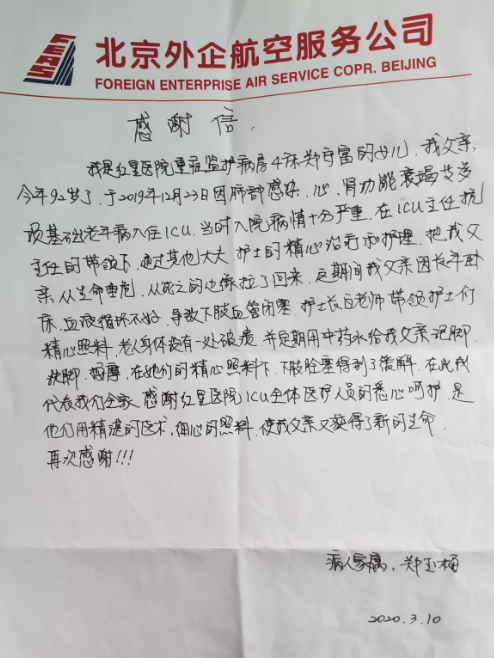 FEAS
北京外企航空服务公司
FOREIGN ENTERPRISE AIR SERVICE COPR. BEIJING
感谢信.
我是红星医院重症监护病房4床郑守富的女儿, 我父亲,
今年92岁了, 于2019年12月23日因肺部感染、心、肾功能衰竭等多
项基础老年病入住ICU, 当时入院病情十分严重, 在ICU主任抗
主任的带领下, 通过其他大夫护士的精心治疗和护理, 把我父
亲从生命垂危, 从死亡的边缘拉了回来, 定期间我父亲因长年卧
床, 血液循环不好, 导致下肢血管闭塞, 护士长白老师带领护士们
精心照料, 老人身体没有一处破溃, 并定期用中药水给我父亲泡脚,
扶脚、按摩, 在她们的精心照料下, 下肢栓塞得到了缓解, 在此我
代表我们全家, 感谢红星医院ICU全体医护人员的悉心呵护, 是
他们用精湛的医术, 细心的照料, 使我父亲又获得了新的生命.
再次感谢!!!
病人家属, 郑玉梅
2020.3.10